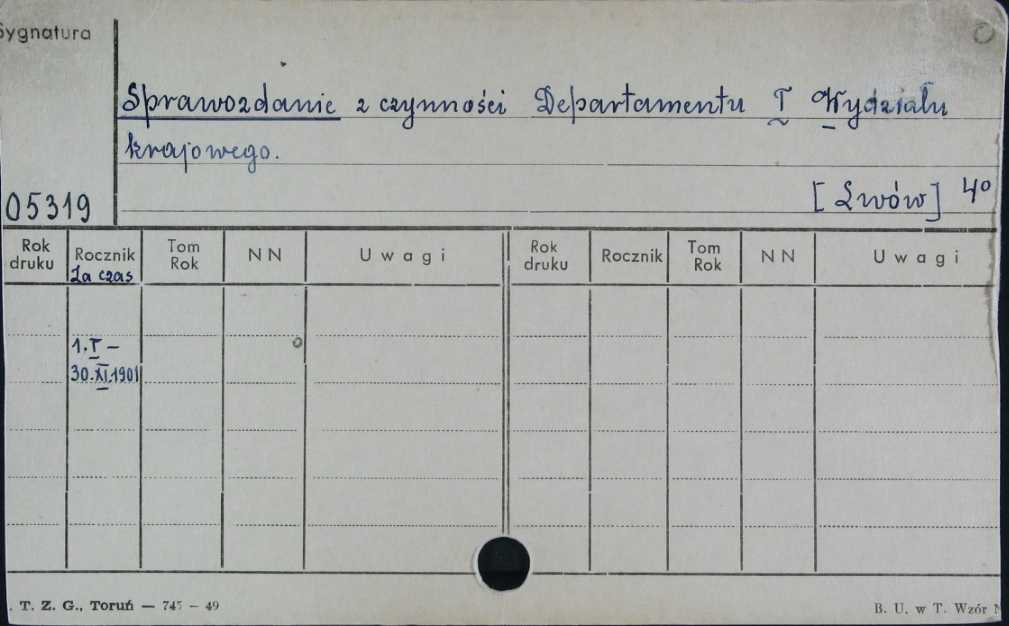 Sygnatura
Sprawozdanie z czynności Departamentu I Wydziału
krajowego.
[Lwów] 4°
05319
Rok druku Rocznik Tom Rok NN Uwagi Rok druku Rocznik Tom Rok NN Uwagi
Za czas
1.I –
30.XI.1901
T. Z. G., Toruń — 745 – 49
B. U. w T. Wzór